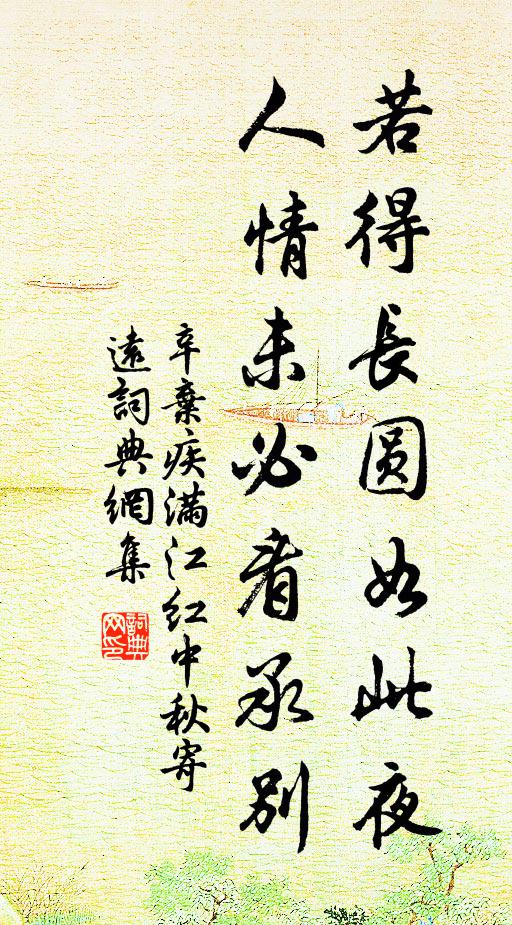 若得長圓如此夜
人情未必看承別
辛棄疾滿江紅中秋寄
遠詞典網集
詞典
网印